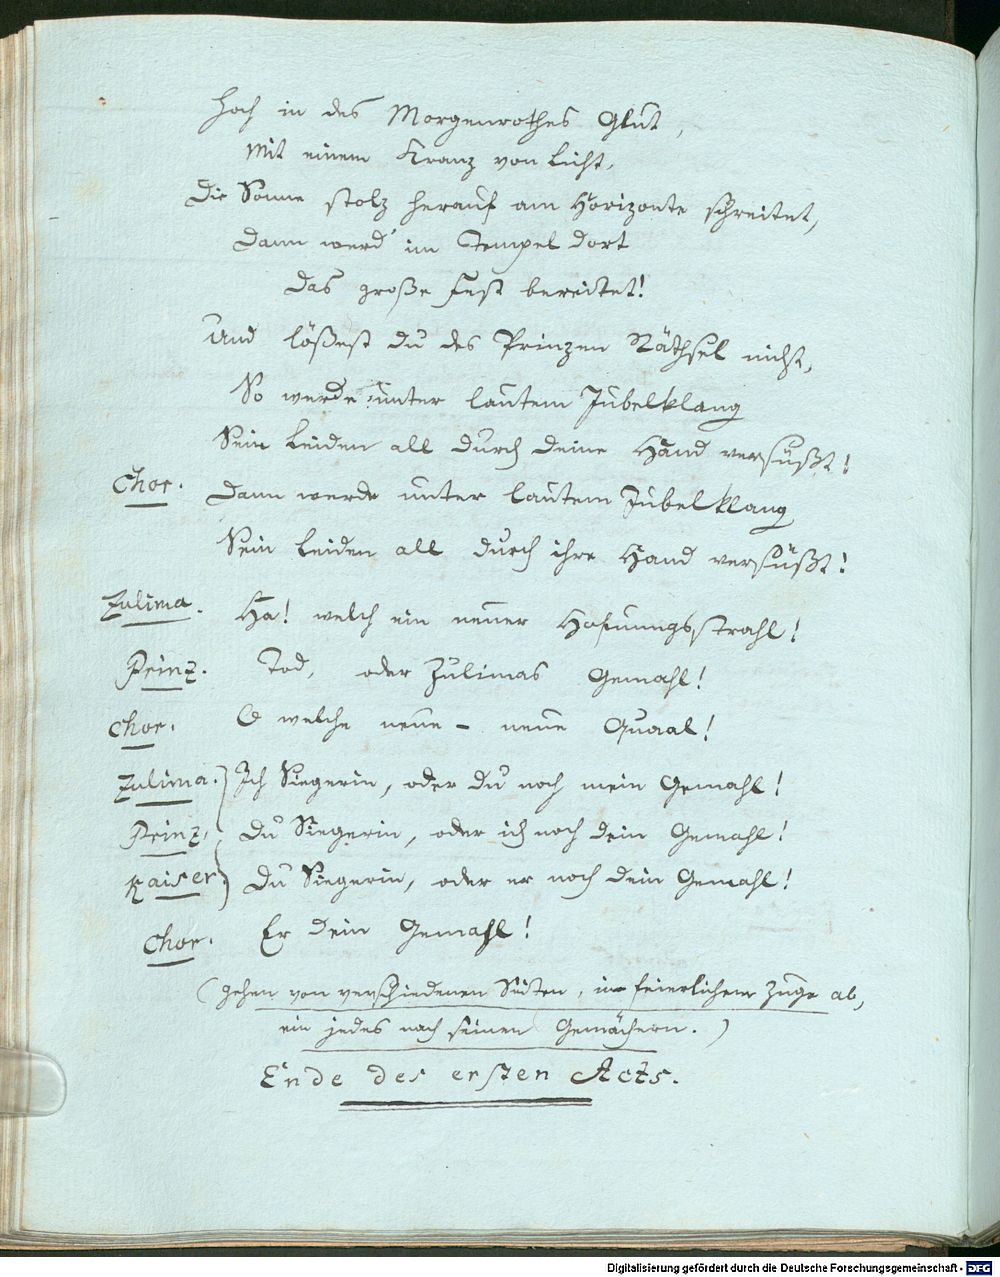 Hoch in des Morgenrothes Glut,
Mit einem Kranz von Licht,
Die Sonne stolz herauf am Horizonte schreitet,
Dann werd' im Tempel dort
Das große Fest bereitet!
Und lößest du des Prinzen Räthsel nicht,
So werde unter lautem Jubelklang
Sein Leiden all durch deine Hand versüßt!
Chor. Dann werde unter lautem Jubelklang
Sein Leiden all durch ihre Hand versüßt!
Zulima. Ha! welch ein neuer Hofnungsstrahl!
Prinz. Tod, oder Zulimas Gemahl!
Chor. O welche neue – neue Quaal!
Zulima. Ich Siegerin, oder du noch mein Gemahl!
Prinz. Du Siegerin, oder ich noch dein Gemahl!
Kaiser. Du Siegerin, oder er noch dein Gemahl!
Chor. Er dein Gemahl!
(gehen von verschiedenen Seiten, in feierlichem Zuge ab,
ein jedes nach seinen Gemächern.)
Ende des ersten Acts.
Digitalisierung gefördert durch die Deutsche Forschungsgemeinschaft - DFG